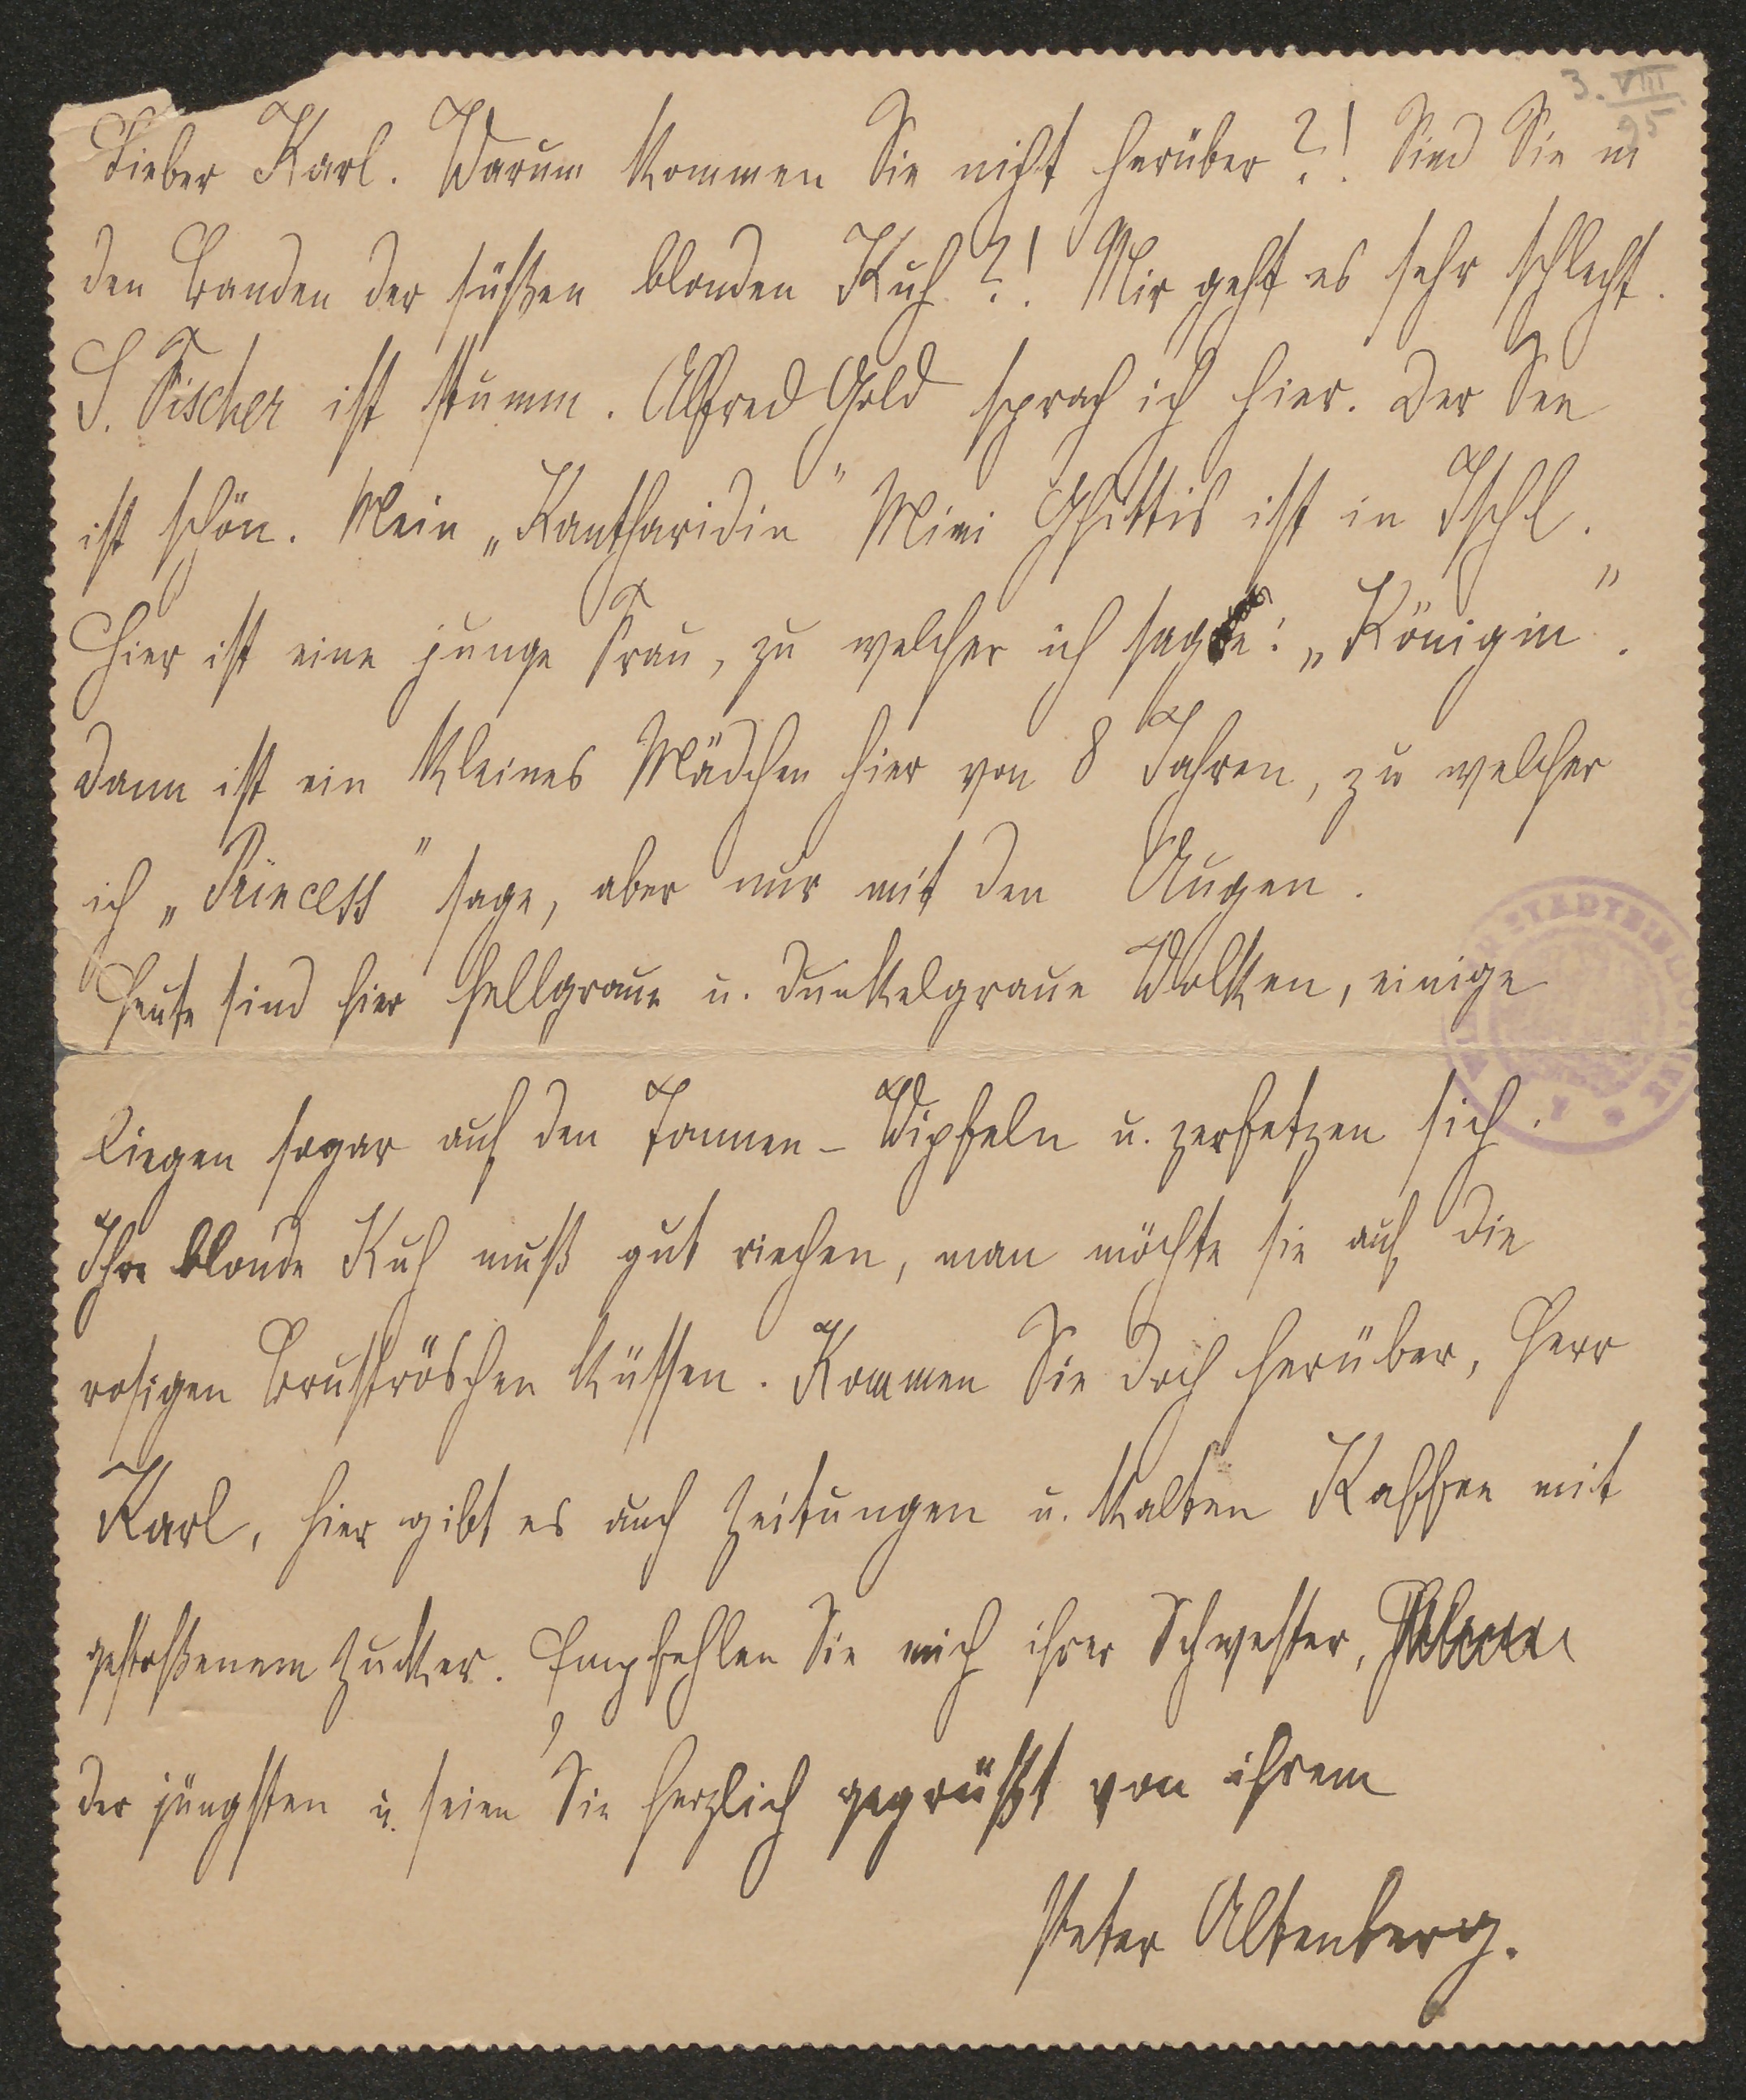 3. VIII
95
Lieber Karl. Warum kommen Sie nicht herüber?! Sind Sie in
den Banden der süßen blonden Kuh?! Mir geht es sehr schlecht.
S. Fischer ist stumm. Alfred Gold sprach ich hier. Der See
ist schön. Mein „Kantharidin" Mimi Ghittis ist in Ischl.
Hier ist eine junge Frau, zu welcher ich sage: „Königin".
Dann ist ein kleines Mädchen hier von 8 Jahren, zu welcher
ich „Princess" sage, aber nur mit den Augen.
Heute sind hier hellgraue u. dunkelgraue Wolken, einige
liegen sogar auf den Tannen-Wipfeln u. zerfetzen sich.
Ihre blonde Kuh muß gut riechen, man möchte sie auf die
rosigen Bruströschen küssen. Kommen Sie doch herüber, Herr
Karl, hier gibt es auch Zeitungen u. kalten Kaffee mit
gestoßenem Zucker. Empfehlen Sie mich ihrer Schwester,
der jüngsten, u. seien Sie herzlich gegrüßt von ihrem
Peter Altenberg.